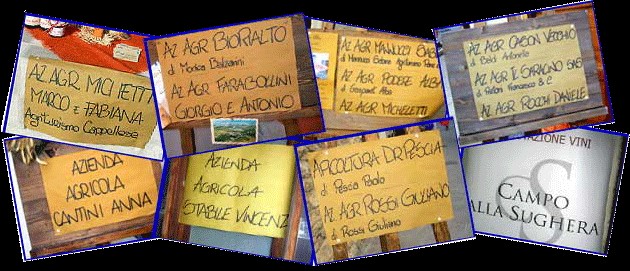 AZ AGR MICHETTI
MARCO E FABIANA
Agriturismo Cappellese
AZ AGR BIORIALTO
di Monica Balzanni
AZ AGR FARABOLLINI
GIORGIO E ANTONIO
AZ AGR MANNUCCI
AZ AGR PODERE ALBA
AZ AGR MICHELETTI
AZ AGR CASON VECCHIO
di Baldi Antonella
AZ AGR IL SARAGNO SAS
di Pistoni Francesco & C
AZ AGR ROCCHI DANIELE
AZIENDA
AGRICOLA
CANTINI ANNA
AZIENDA
AGRICOLA
STABILE VINCENZ
APICOLTURA DR. PESCIA
di Pescia Paolo
AZ AGR ROSSI GIULIANO
di Rossi Giuliano
AZIONE VINI
CS
CAMPO
ALLA SUGHERA